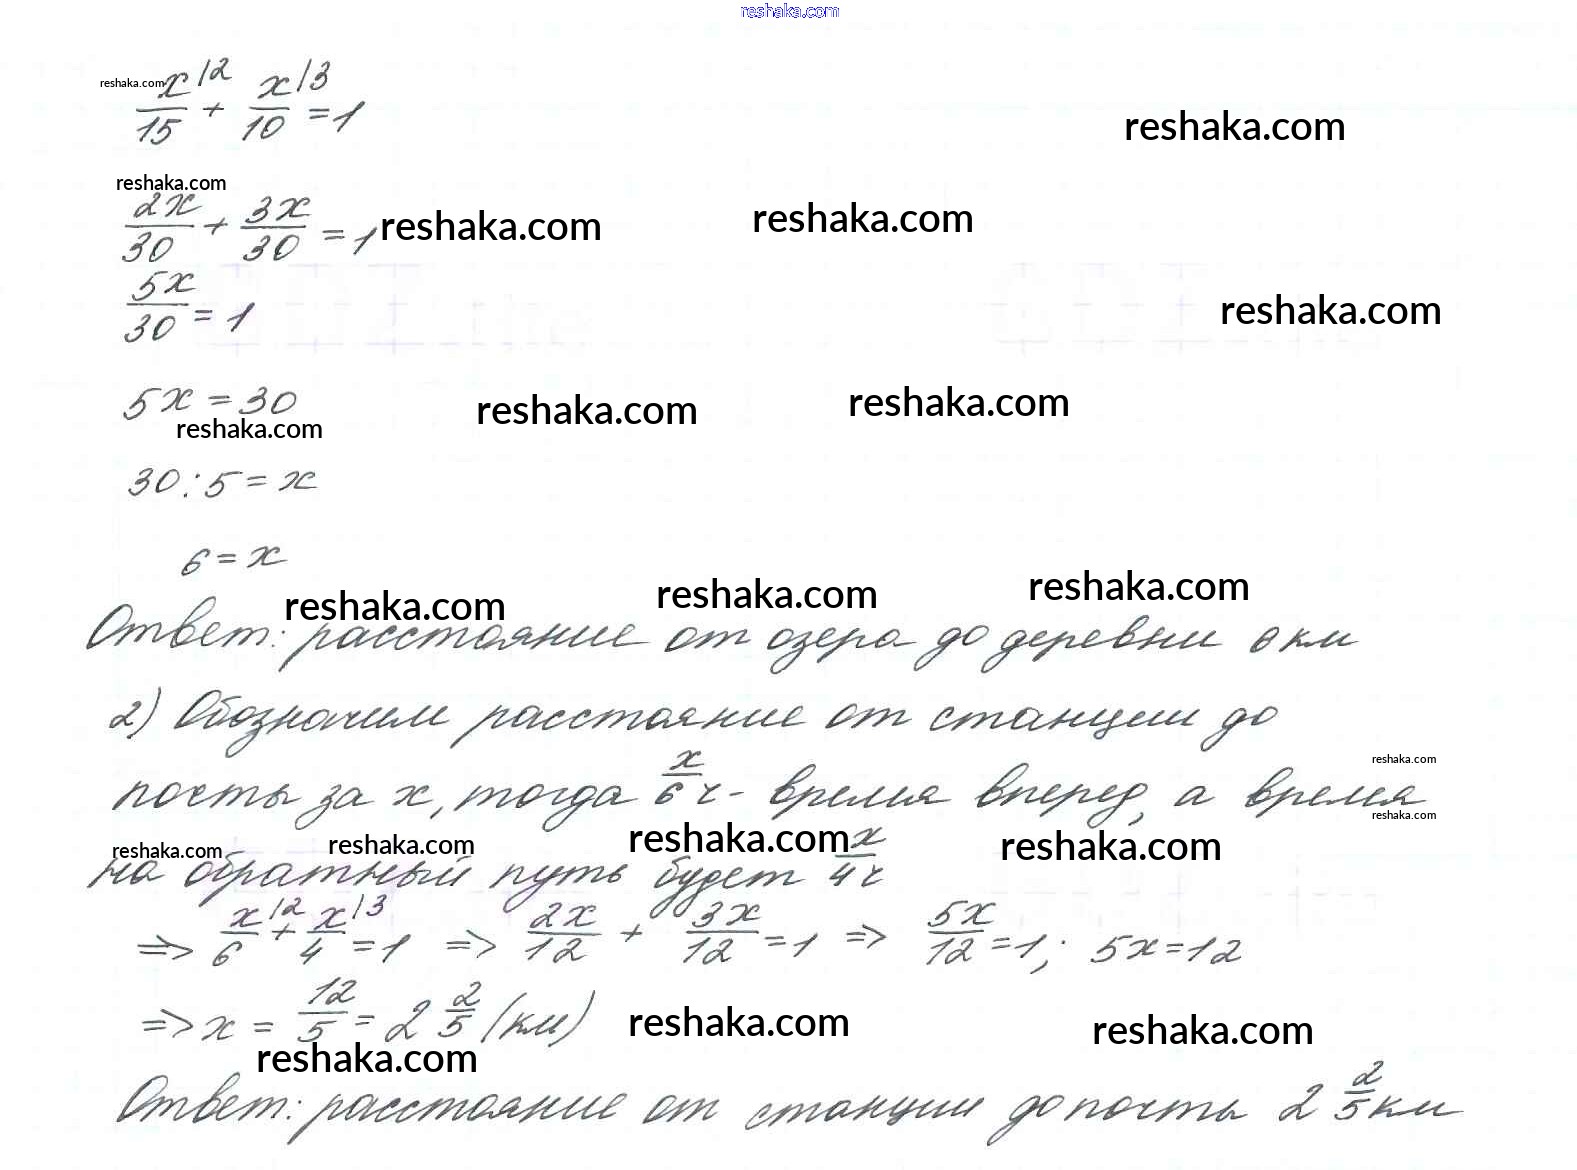 reshaka.com
reshaka.com
x|2/15 + x|3/10 = 1
reshaka.com
reshaka.com
2x/30 + 3x/30 = 1
reshaka.com
reshaka.com
5x/30 = 1
reshaka.com
5x = 30
reshaka.com
reshaka.com
reshaka.com
30 : 5 = x
6 = x
reshaka.com
reshaka.com
reshaka.com
Ответ: расстояние от озера до деревни 6 км
2) Обозначим расстояние от станции до
reshaka.com
почты за x, тогда x/6 ч - время вперед, а время
reshaka.com
reshaka.com
reshaka.com
reshaka.com
reshaka.com
на обратный путь будет x/4 ч
=> x|2/6 + x|3/4 = 1 => 2x/12 + 3x/12 = 1 => 5x/12 = 1; 5x = 12
=> x = 12/5 = 2 2/5 (км)
reshaka.com
reshaka.com
reshaka.com
Ответ: расстояние от станции до почты 2 2/5 км